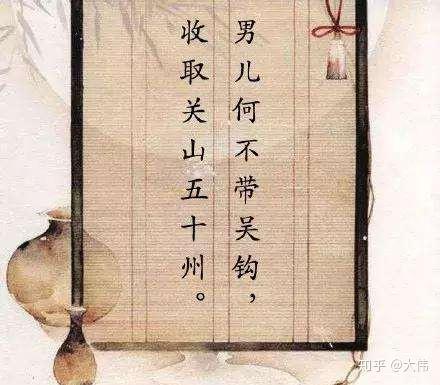 男儿何不带吴钩，
收取关山五十州。
知乎 @大伟